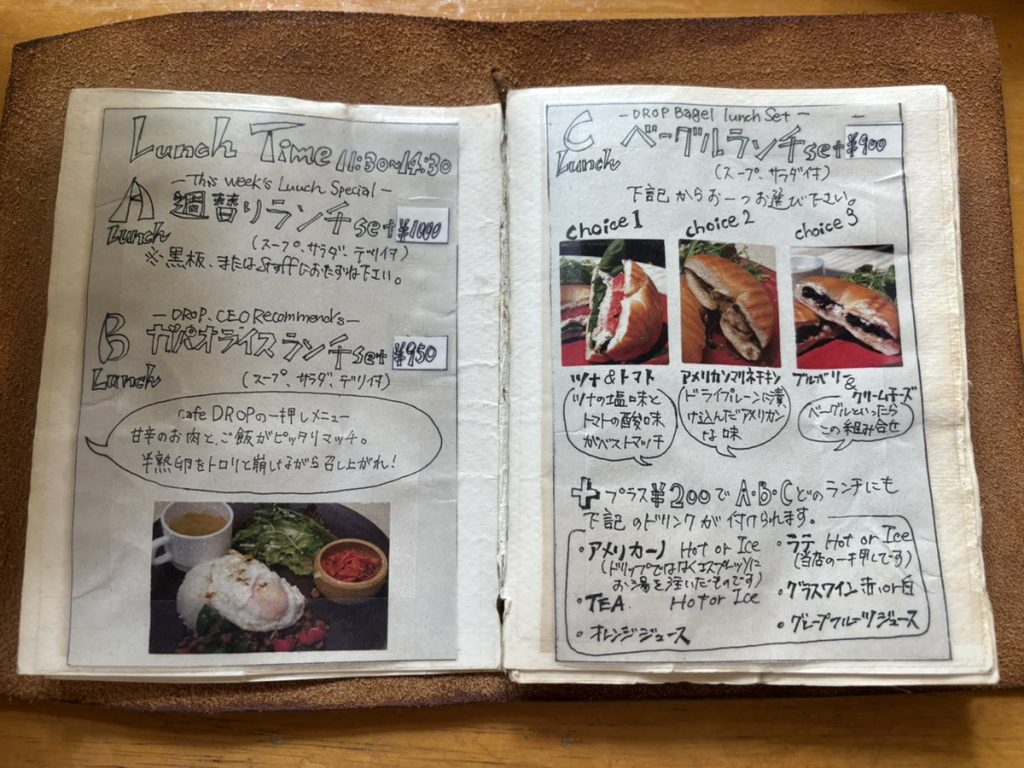 Lunch Time 11:30~14:30
—This week's Lunch Special—
A Lunch 週替りランチset ¥1000
(スープ、サラダ、デリ付)
※黒板、またはStaffにおたずね下さい。
—DROP. CEO Recommends—
B Lunch ガパオライスランチset ¥950
(スープ、サラダ、デリ付)
cafe DROPの一押しメニュー
甘辛のお肉と、ご飯がピッタリマッチ。
半熟卵をトロリと崩しながら召し上がれ!
—DROP Bagel lunch Set—
C Lunch ベーグルランチset ¥900
(スープ、サラダ付)
下記からお一つお選び下さい。
choice 1
choice 2
choice 3
ツナ&トマト
ツナの塩味と
トマトの酸味
がベストマッチ
アメリカンマリネチキン
ドライプレーンに漬
け込んだアメリカン
な味
ブルーベリー&
クリームチーズ
ベーグルといったら
この組み合せ
+プラス¥200でA・B・Cどのランチにも
下記のドリンクが付けられます。
・アメリカーノ Hot or Ice
(ドリップではなくエスプレッソに
お湯を注いだものです)
・TEA Hot or Ice
・オレンジジュース
・ラテ Hot or Ice
(当店の一押しです)
・グラスワイン 赤.or白
・グレープフルーツジュース